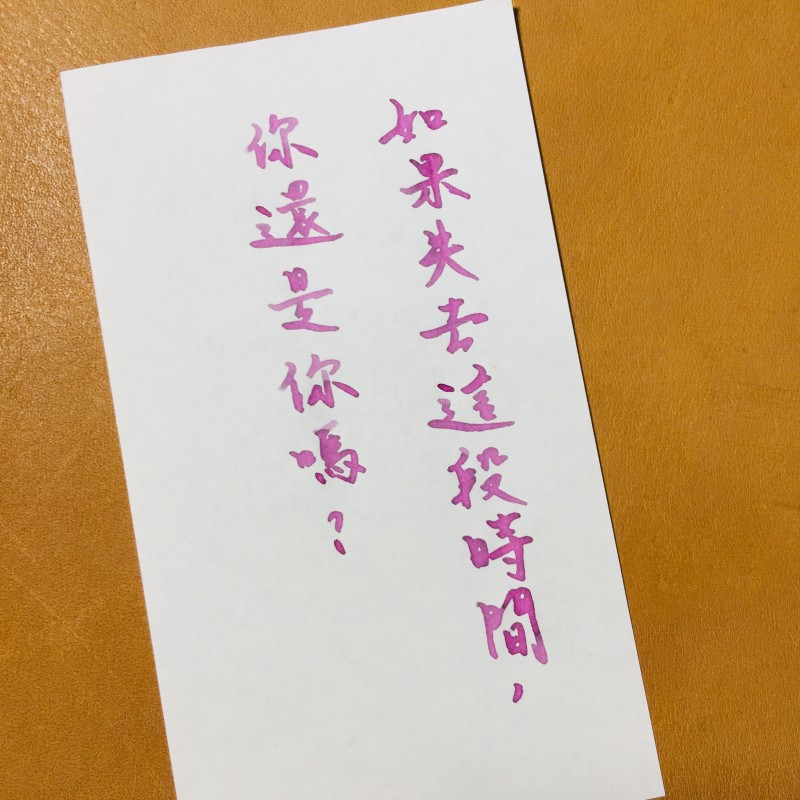 如果失去這段時間，
你還是你嗎？